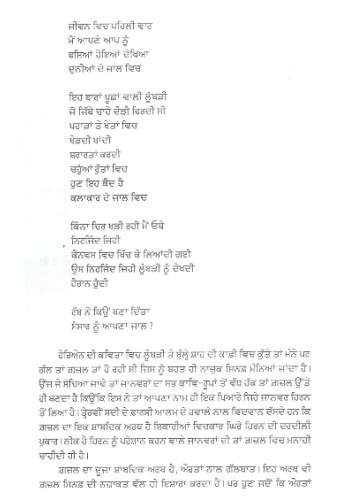 ਜੀਵਨ ਵਿਚ ਪਹਿਲੀ ਵਾਰ
ਮੈਂ ਆਪਣੇ ਆਪ ਨੂੰ
ਫਸਿਆਂ ਹੋਇਆਂ ਦੇਖਿਆ
ਦੁਨੀਆਂ ਦੇ ਜਾਲ ਵਿਚ
ਇਹ ਬਾਰਾਂ ਪੂਛਾਂ ਵਾਲੀ ਲੂੰਬੜੀ
ਜੋ ਜਿੱਥੇ ਚਾਹੇ ਦੌੜੀ ਫਿਰਦੀ ਸੀ
ਪਹਾੜਾਂ ਤੇ ਖੇਤਾਂ ਵਿਚ
ਖੇਡਦੀ ਖਾਂਦੀ
ਸ਼ਰਾਰਤਾਂ ਕਰਦੀ
ਚਹੁੰਆਂ ਰੁੱਤਾਂ ਵਿਚ
ਹੁਣ ਇਹ ਬੰਦ ਹੈ
ਕਲਾਕਾਰ ਦੇ ਜਾਲ ਵਿਚ
ਕਿੰਨਾ ਚਿਰ ਖੜੀ ਰਹੀ ਮੈਂ ਓਥੇ
ਨਿਰਜਿੰਦ ਜਿਹੀ
ਕੈਨਵਸ ਵਿਚ ਖਿੱਚ ਕੇ ਲਿਆਂਦੀ ਗਈ
ਉਸ ਨਿਰਜਿੰਦ ਜਿਹੀ ਲੂੰਬੜੀ ਨੂੰ ਦੇਖਦੀ
ਹੈਰਾਨ ਹੁੰਦੀ
ਰੱਬ ਨੇ ਕਿਉਂ ਬਣਾ ਦਿੱਤਾ
ਸੰਸਾਰ ਨੂੰ ਆਪਣਾ ਜਾਲ ?
ਹੇਰਿਐਨ ਦੀ ਕਵਿਤਾ ਵਿਚ ਲੂੰਬੜੀ ਤੇ ਬੁੱਲ੍ਹੇ ਸ਼ਾਹ ਦੀ ਕਾਫ਼ੀ ਵਿਚ ਕੁੱਤੇ ਤਾਂ ਮੰਨੇ ਪਰ
ਗੱਲ ਤਾਂ ਗ਼ਜ਼ਲ ਦੀ ਹੋ ਰਹੀ ਸੀ ਜਿਸ ਨੂੰ ਬਹੁਤ ਹੀ ਨਾਜ਼ੁਕ ਸਿਨਫ਼ ਮੰਨਿਆ ਜਾਂਦਾ ਹੈ।
ਉਂਜ ਜੇ ਸੋਚਿਆ ਜਾਵੇ ਤਾਂ ਜਾਨਵਰਾਂ ਦਾ ਸਭ ਕਾਵਿ-ਰੂਪਾਂ ਤੋਂ ਵੱਧ ਹੱਕ ਤਾਂ ਗ਼ਜ਼ਲ ਉੱਤੇ
ਹੀ ਬਣਦਾ ਹੈ ਕਿਉਂਕਿ ਇਸ ਨੇ ਤਾਂ ਆਪਣਾ ਨਾਮ ਹੀ ਇਕ ਪਿਆਰੇ ਜਿਹੇ ਜਾਨਵਰ ਹਿਰਨ
ਤੋਂ ਲਿਆ ਹੈ। ਤੇਰ੍ਹਵੀਂ ਸਦੀ ਦੇ ਫ਼ਾਰਸੀ ਆਲਮ ਦੇ ਹਵਾਲੇ ਨਾਲ ਵਿਦਵਾਨ ਦੱਸਦੇ ਹਨ ਕਿ
ਗ਼ਜ਼ਲ ਦਾ ਇਕ ਸ਼ਾਬਦਿਕ ਅਰਥ ਹੈ ਸ਼ਿਕਾਰੀਆਂ ਵਿਚਕਾਰ ਘਿਰੇ ਹਿਰਨ ਦੀ ਦਰਦੀਲੀ
ਪੁਕਾਰ। ਠੀਕ ਹੈ ਹਿਰਨ ਨੂੰ ਪਰੇਸ਼ਾਨ ਕਰਨ ਵਾਲੇ ਜਾਨਵਰਾਂ ਦੀ ਤਾਂ ਗ਼ਜ਼ਲ ਵਿਚ ਮਨਾਹੀ
ਚਾਹੀਦੀ ਹੀ ਹੈ।
ਗ਼ਜ਼ਲ ਦਾ ਦੂਜਾ ਸ਼ਾਬਦਿਕ ਅਰਥ ਹੈ, ਔਰਤਾਂ ਨਾਲ ਗੱਲਬਾਤ। ਇਹ ਅਰਥ ਵੀ
ਗ਼ਜ਼ਲ ਸਿਨਫ਼ ਦੀ ਨਜ਼ਾਕਤ ਵੱਲ ਹੀ ਇਸ਼ਾਰਾ ਕਰਦਾ ਹੈ। ਪਰ ਹੁਣ ਜਦੋਂ ਕਿ ਔਰਤਾਂ